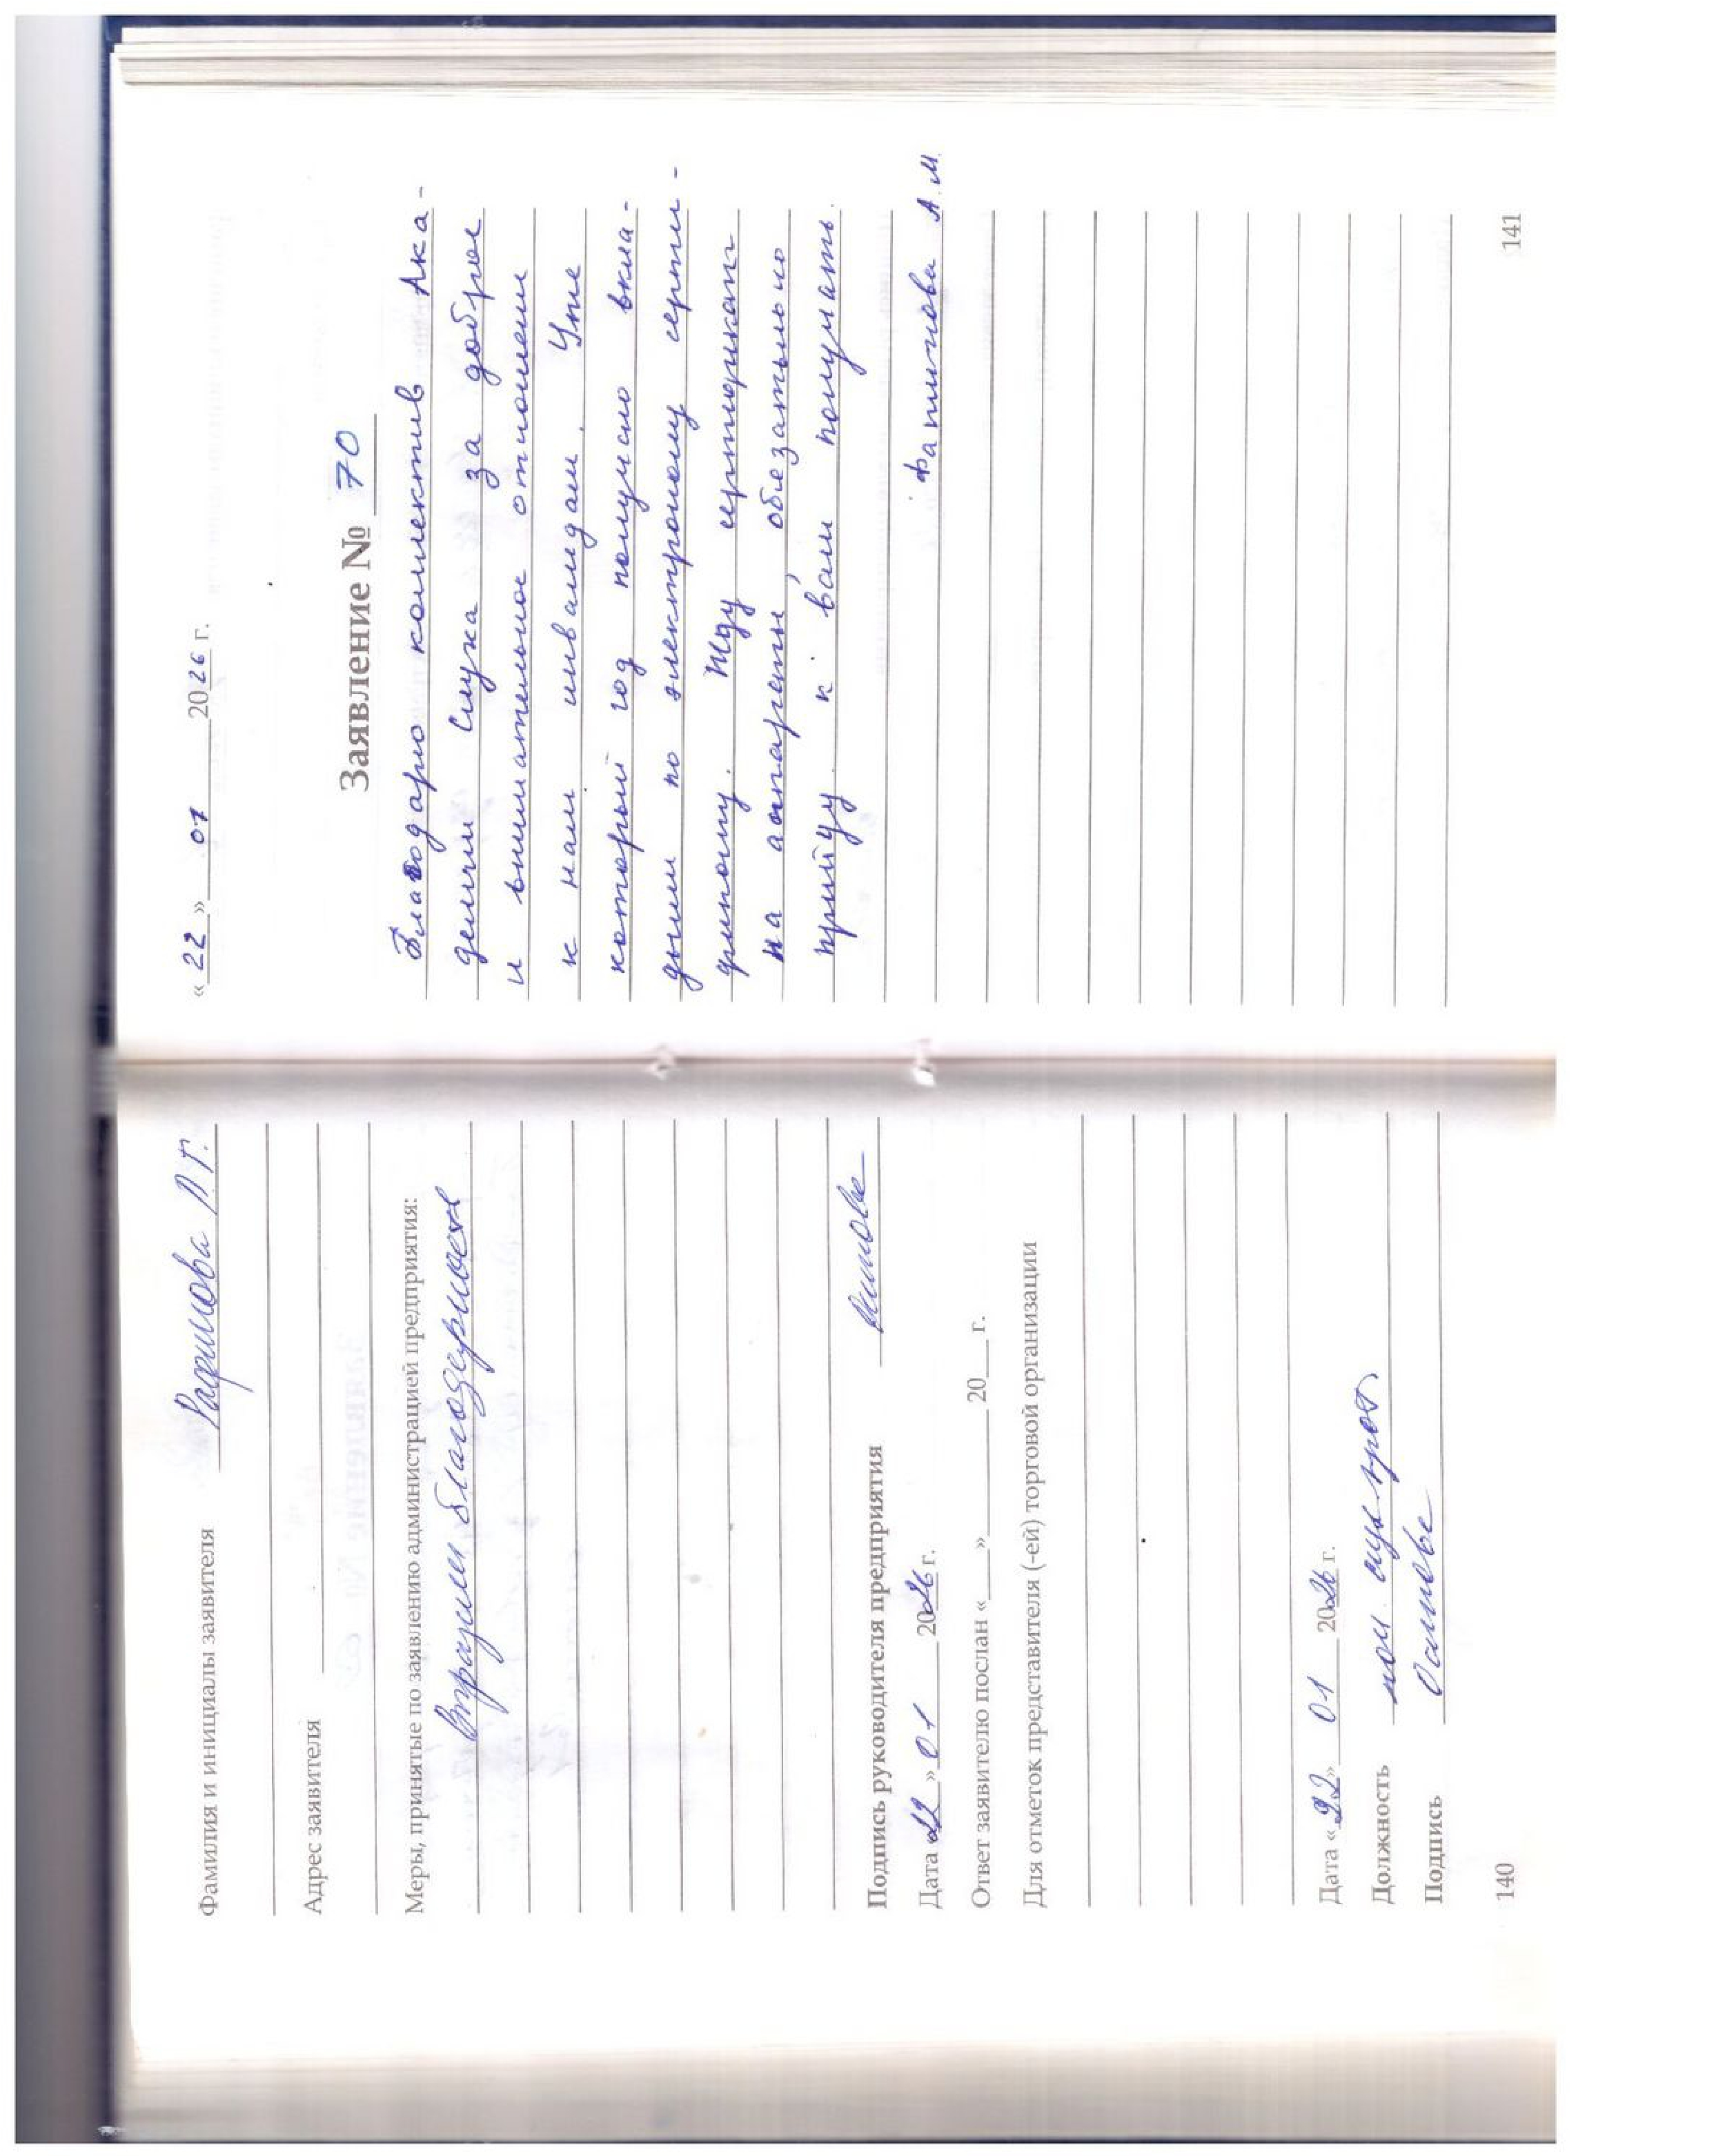 Фамилия и инициалы заявителя Рафикова Л.Г.
Адрес заявителя
Меры, принятые по заявлению администрацией предприятия:
благодарность
Подпись руководителя предприятия
Дата «22» 01 2026 г.
Ответ заявителю послан «___» ______ 20__ г.
Для отметок представителя (-ей) торговой организации
Дата «22» 01 2026 г.
Должность
Подпись
140
«22» 01 2026 г.
Заявление № 70
Благодарю коллектив Ака-
демии Слуха за доброе
и внимательное отношении
к нам инвалидам. Уже
который год получаю вкла-
дыши по электроному серти-
фикату. Жду сертификат
на аппараты, обезательно
прийду к вам получать.
Фатихова А.М.
141